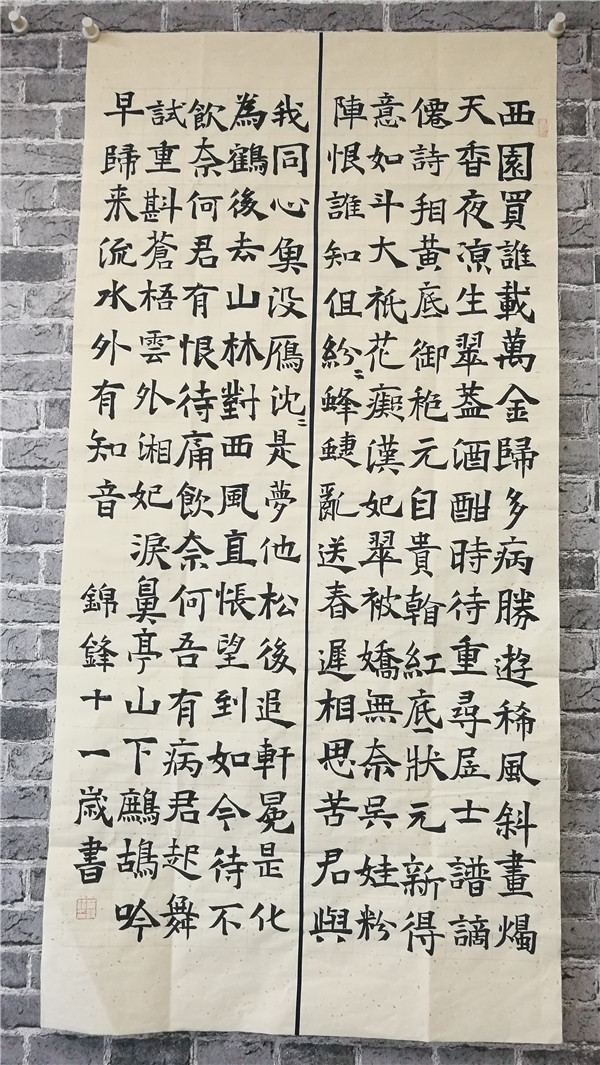 西園買誰載萬金歸多病勝遊稀風斜畫燭
天香夜涼生翠蓋酒酣時待重尋居士譜謫
僊詩看黃底御袍元自貴看紅底狀元新得
意如斗大祇花癡漢妃翠被嬌無奈吳娃粉
陣恨誰知但紛〻蜂蜨亂送春遲相思苦君與
我同心魚没鴈沈〻是夢他松後追軒冕是化
為鶴後去山林對西風直悵望到如今待不
飲奈何君有恨待痛飲奈何吾有病君起舞
試重斟蒼梧雲外湘妃淚鼻亭山下鷓鴣吟
早歸来流水外有知音 錦鋒十一歲書